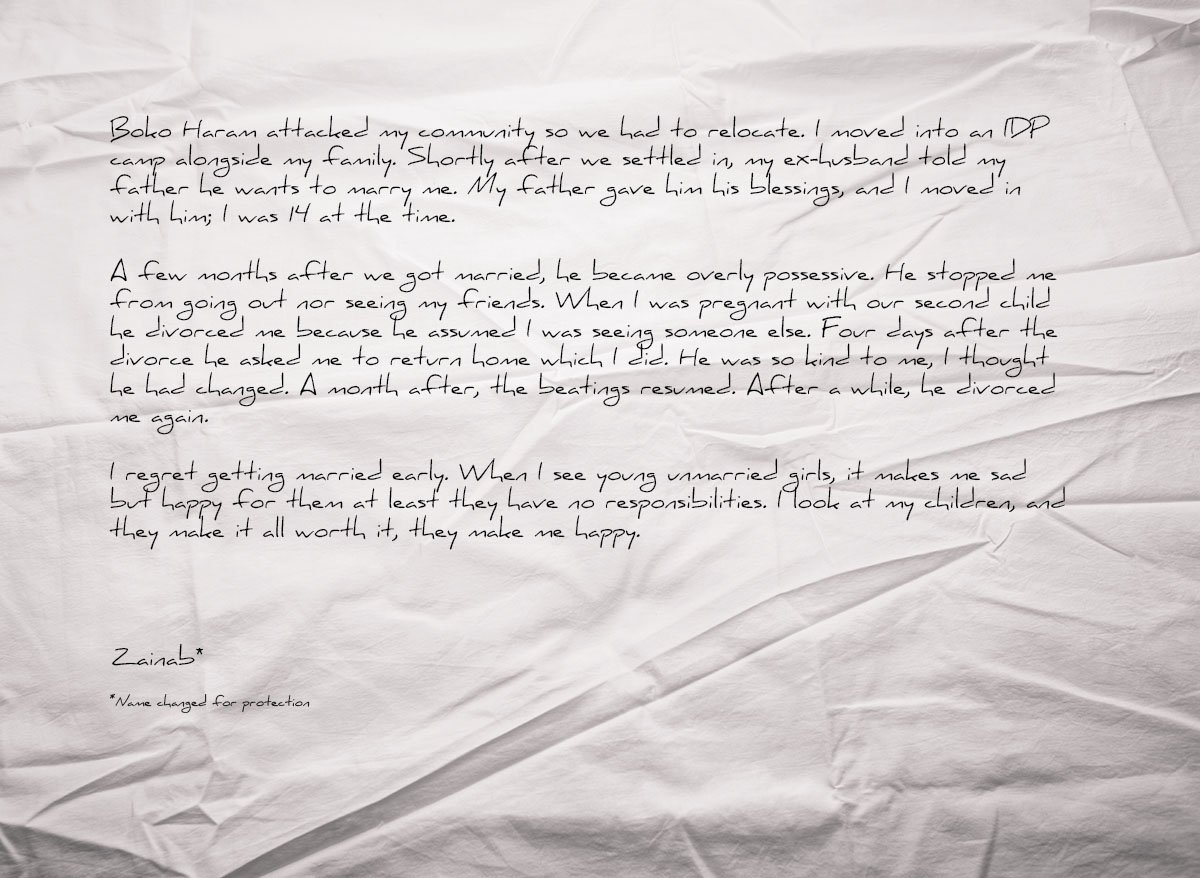 Boko Haram attacked my community so we had to relocate. I moved into an IDP
camp alongside my family. Shortly after we settled in, my ex-husband told my
father he wants to marry me. My father gave him his blessings, and I moved in
with him; I was 14 at the time.
A few months after we got married, he became overly possessive. He stopped me
from going out nor seeing my friends. When I was pregnant with our second child
he divorced me because he assumed I was seeing someone else. Four days after the
divorce he asked me to return home which I did. He was so kind to me, I thought
he had changed. A month after, the beatings resumed. After a while, he divorced
me again.
I regret getting married early. When I see young unmarried girls, it makes me sad
but happy for them at least they have no responsibilities. I look at my children, and
they make it all worth it, they make me happy.
Zainab*
*Name changed for protection